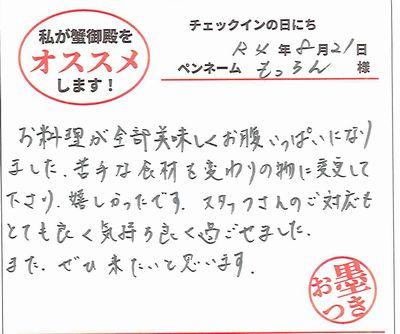 私が蟹御殿を
オススメ
します!
チェックインの日にち
R4年8月21日
ペンネーム もっろん 様
お料理が全部美味しくお腹いっぱいになり
ました。苦手な食材も変わりの物に変更して
下さり、嬉しかったです。スタッフさんのご対応も
とても良く気持ち良く過ごせました。
また、ぜひ来たいと思います。
お墨
つき